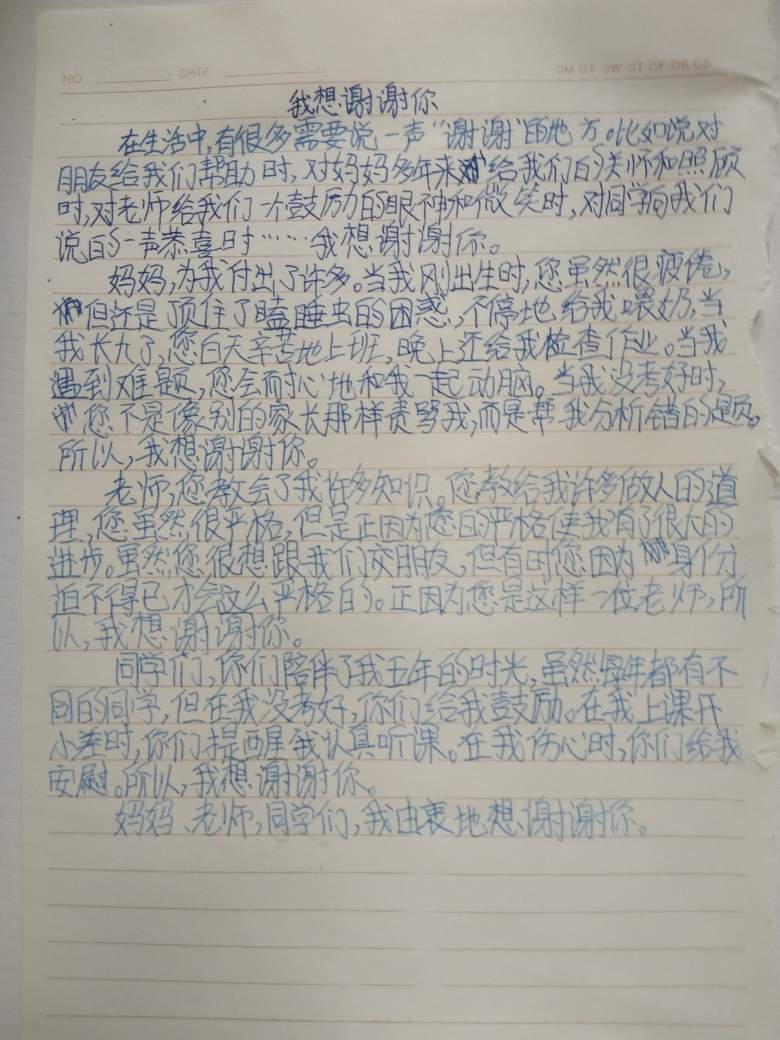 NO
DATE
MO TU WE TH FR SA SU
我想谢谢你
在生活中,有很多需要说一声“谢谢”的地方。比如说对
朋友给我们帮助时,对妈妈多年来给我们的关怀和照顾
时,对老师给我们一个鼓励的眼神和微笑时,对同学向我们
说的一声恭喜时……我想谢谢你。
妈妈,为我付出了许多。当我刚出生时,您虽然很疲倦,
但还是顶住了瞌睡虫的困惑,不停地给我喂奶,当
我长大了,您白天辛苦地上班,晚上还给我检查作业。当我
遇到难题,您会耐心地和我一起动脑。当我没考好时,
您不是像别的家长那样责骂我,而是帮我分析错的题。
所以,我想谢谢你。
老师,您教会了我许多知识。您教给我许多做人的道
理,您虽然很严格,但是正因为您的严格使我有了很大的
进步。虽然您很想跟我们交朋友,但有时您因为身份
迫不得已才会这么严格的。正因为您是这样一位老师,所
以,我想谢谢你。
同学们,你们陪伴了我五年的时光,虽然每年都有不
同的同学,但在我没考好,你们给我鼓励。在我上课开
小差时,你们提醒我认真听课。在我伤心时,你们给我
安慰。所以,我想谢谢你。
妈妈、老师,同学们,我由衷地想谢谢你。